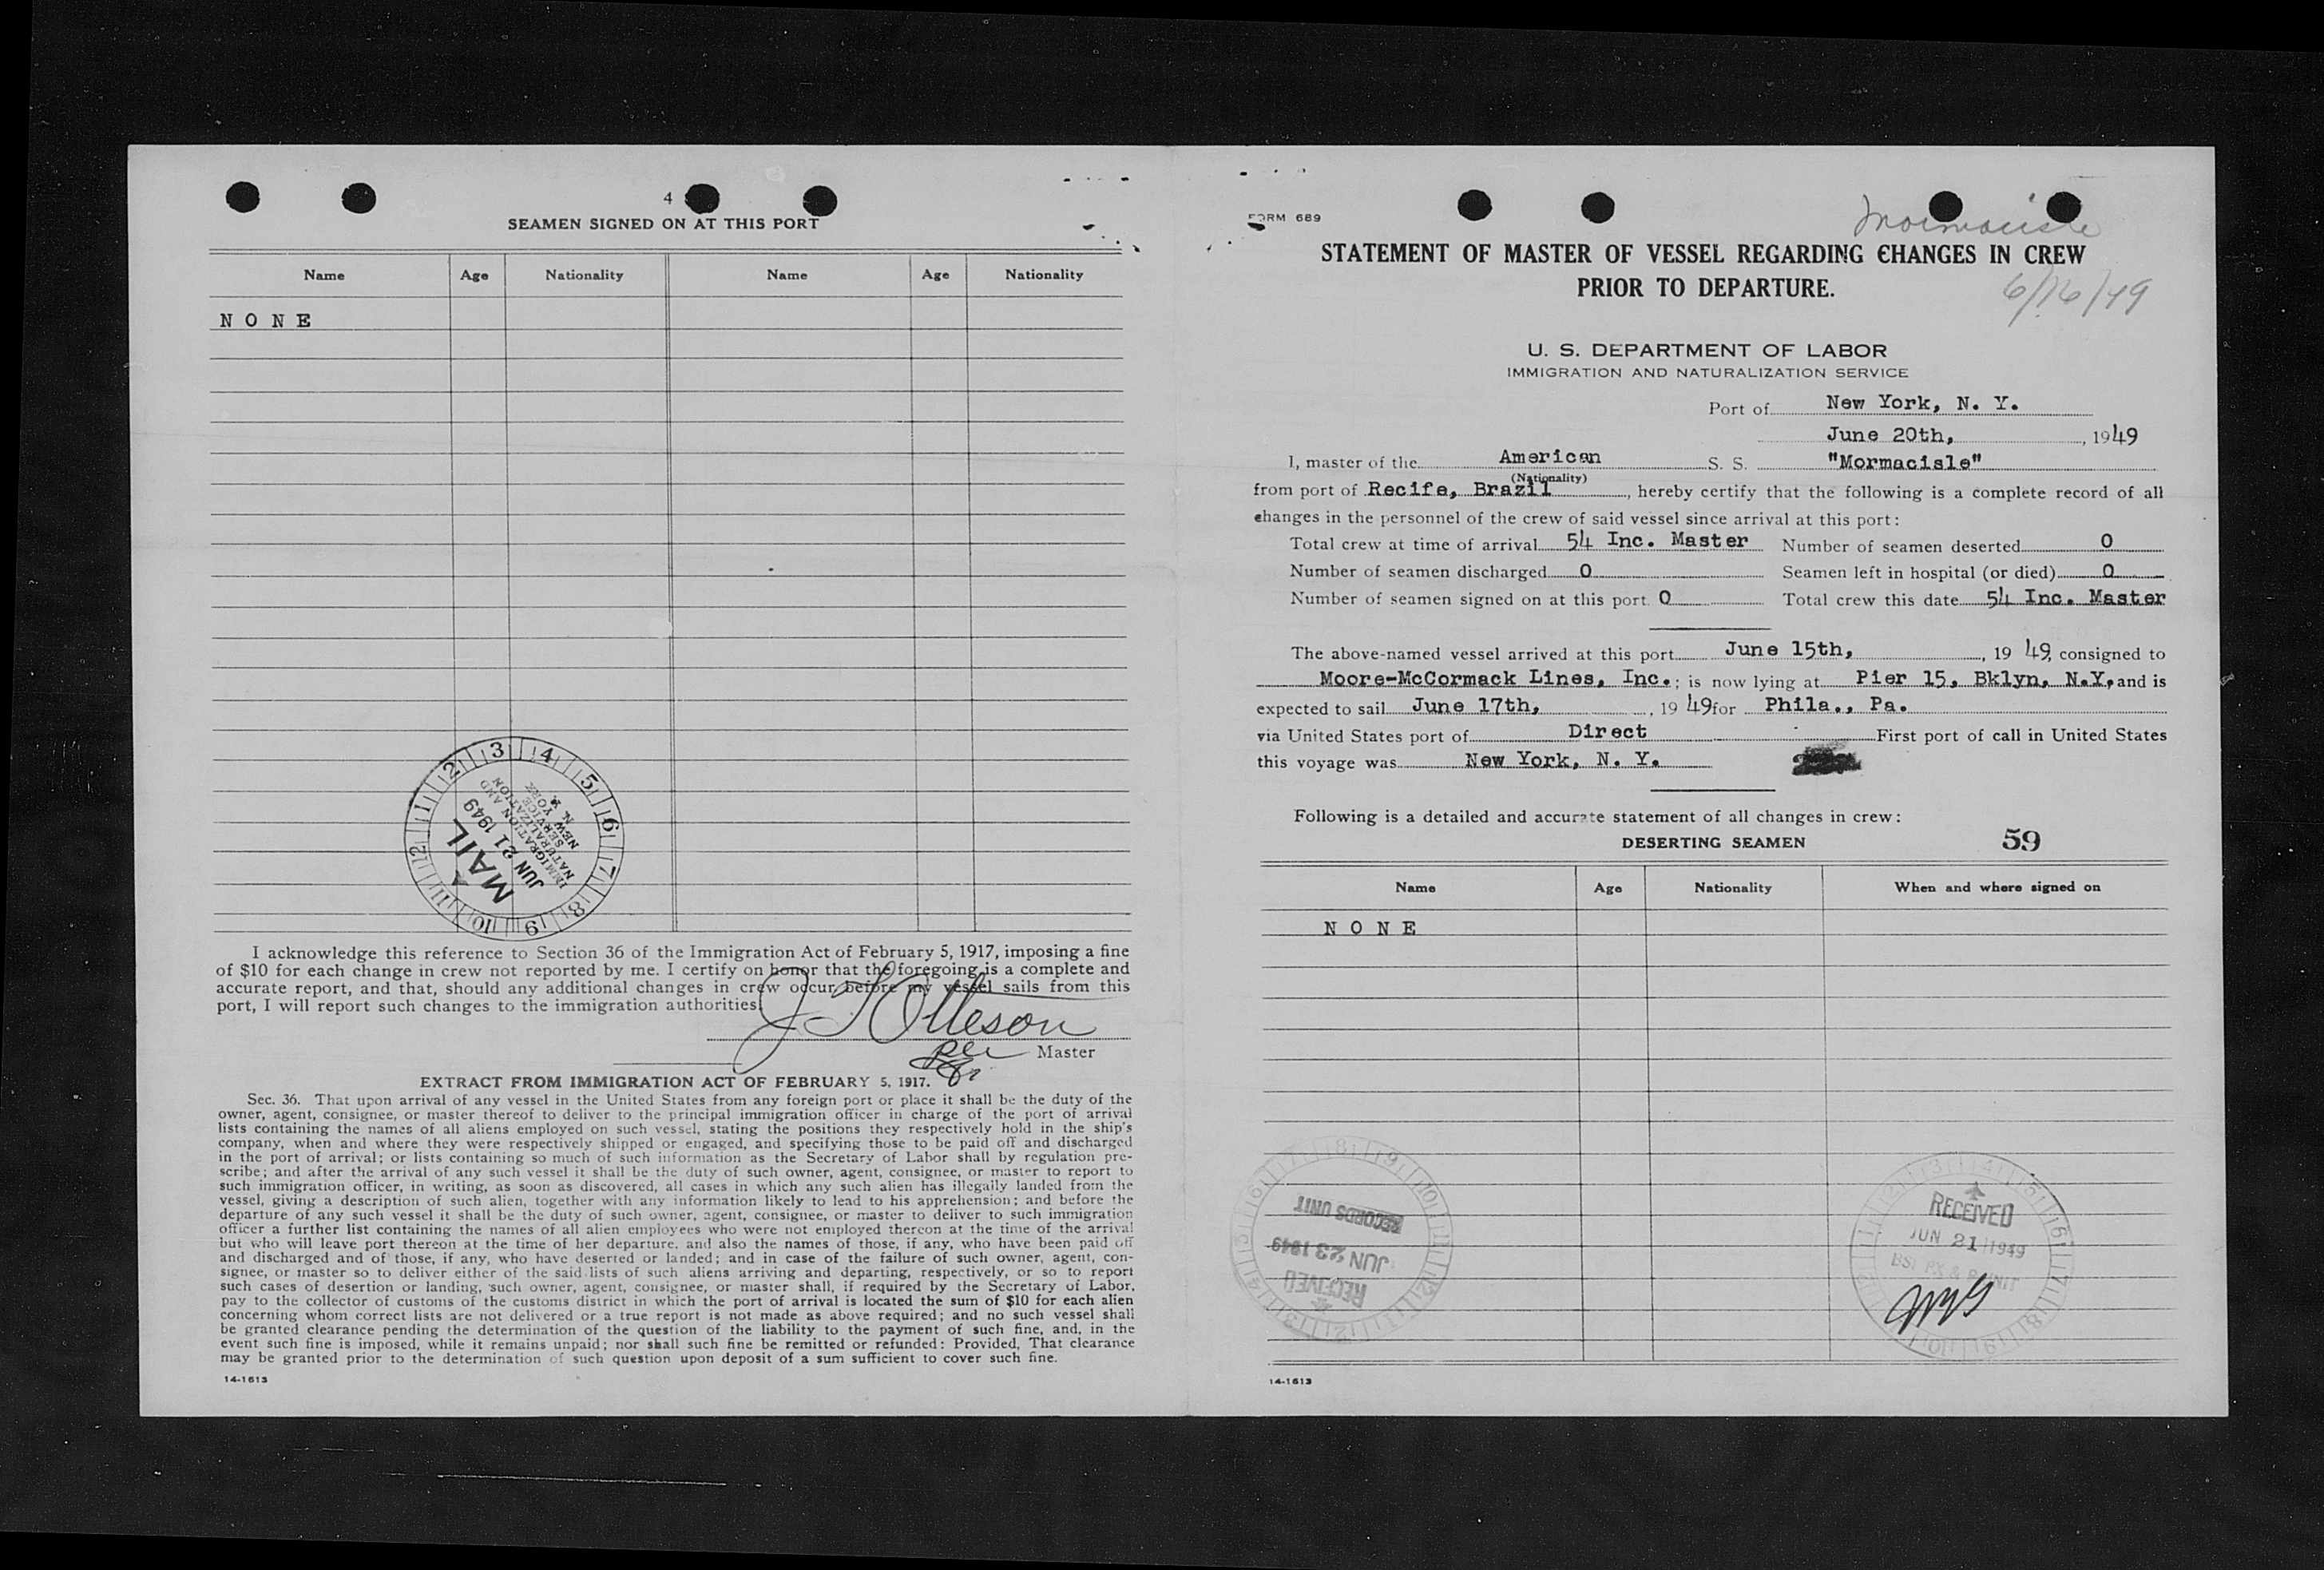 4
SEAMEN SIGNED ON AT THIS PORT
Name Age Nationality Name Age Nationality
N O N E
MAIL
JUN 21 1949
IMMIGRATION AND
NATURALIZATION
SERVICE
NEW YORK
N. Y.
I acknowledge this reference to Section 36 of the Immigration Act of February 5, 1917, imposing a fine
of $10 for each change in crew not reported by me. I certify on honor that the foregoing is a complete and
accurate report, and that, should any additional changes in crew occur before my vessel sails from this
port, I will report such changes to the immigration authorities.
J Otteson
per Master
EXTRACT FROM IMMIGRATION ACT OF FEBRUARY 5, 1917.
Sec. 36. That upon arrival of any vessel in the United States from any foreign port or place it shall be the duty of the
owner, agent, consignee, or master thereof to deliver to the principal immigration officer in charge of the port of arrival
lists containing the names of all aliens employed on such vessel, stating the positions they respectively hold in the ship's
company, when and where they were respectively shipped or engaged, and specifying those to be paid off and discharged
in the port of arrival; or lists containing so much of such information as the Secretary of Labor shall by regulation pre-
scribe; and after the arrival of any such vessel it shall be the duty of such owner, agent, consignee, or master to report to
such immigration officer, in writing, as soon as discovered, all cases in which any such alien has illegally landed from the
vessel, giving a description of such alien, together with any information likely to lead to his apprehension; and before the
departure of any such vessel it shall be the duty of such owner, agent, consignee, or master to deliver to such immigration
officer a further list containing the names of all alien employees who were not employed thereon at the time of the arrival
but who will leave port thereon at the time of her departure, and also the names of those, if any, who have been paid off
and discharged and of those, if any, who have deserted or landed; and in case of the failure of such owner, agent, con-
signee, or master so to deliver either of the said lists of such aliens arriving and departing, respectively, or so to report
such cases of desertion or landing, such owner, agent, consignee, or master shall, if required by the Secretary of Labor,
pay to the collector of customs of the customs district in which the port of arrival is located the sum of $10 for each alien
concerning whom correct lists are not delivered or a true report is not made as above required; and no such vessel shall
be granted clearance pending the determination of the question of the liability to the payment of such fine, and, in the
event such fine is imposed, while it remains unpaid; nor shall such fine be remitted or refunded: Provided, That clearance
may be granted prior to the determination of such question upon deposit of a sum sufficient to cover such fine.
14-1613
FORM 689
Mormacisle
STATEMENT OF MASTER OF VESSEL REGARDING CHANGES IN CREW
PRIOR TO DEPARTURE.
6/16/49
U. S. DEPARTMENT OF LABOR
IMMIGRATION AND NATURALIZATION SERVICE
Port of New York, N. Y.
June 20th, , 1949
I, master of the American S. S. "Mormacisle"
(Nationality)
from port of Recife, Brazil , hereby certify that the following is a complete record of all
changes in the personnel of the crew of said vessel since arrival at this port:
Total crew at time of arrival 54 Inc. Master Number of seamen deserted 0
Number of seamen discharged 0 Seamen left in hospital (or died) 0
Number of seamen signed on at this port 0 Total crew this date 54 Inc. Master
The above-named vessel arrived at this port June 15th, , 19 49, consigned to
Moore-McCormack Lines, Inc.; is now lying at Pier 15, Bklyn, N.Y. and is
expected to sail June 17th, , 19 49 for Phila., Pa.
via United States port of Direct First port of call in United States
this voyage was New York, N. Y.
Following is a detailed and accurate statement of all changes in crew:
DESERTING SEAMEN 59
Name Age Nationality When and where signed on
N O N E
RECEIVED
JUN 23 1949
RECORDS UNIT
RECEIVED
JUN 21 1949
14-1613